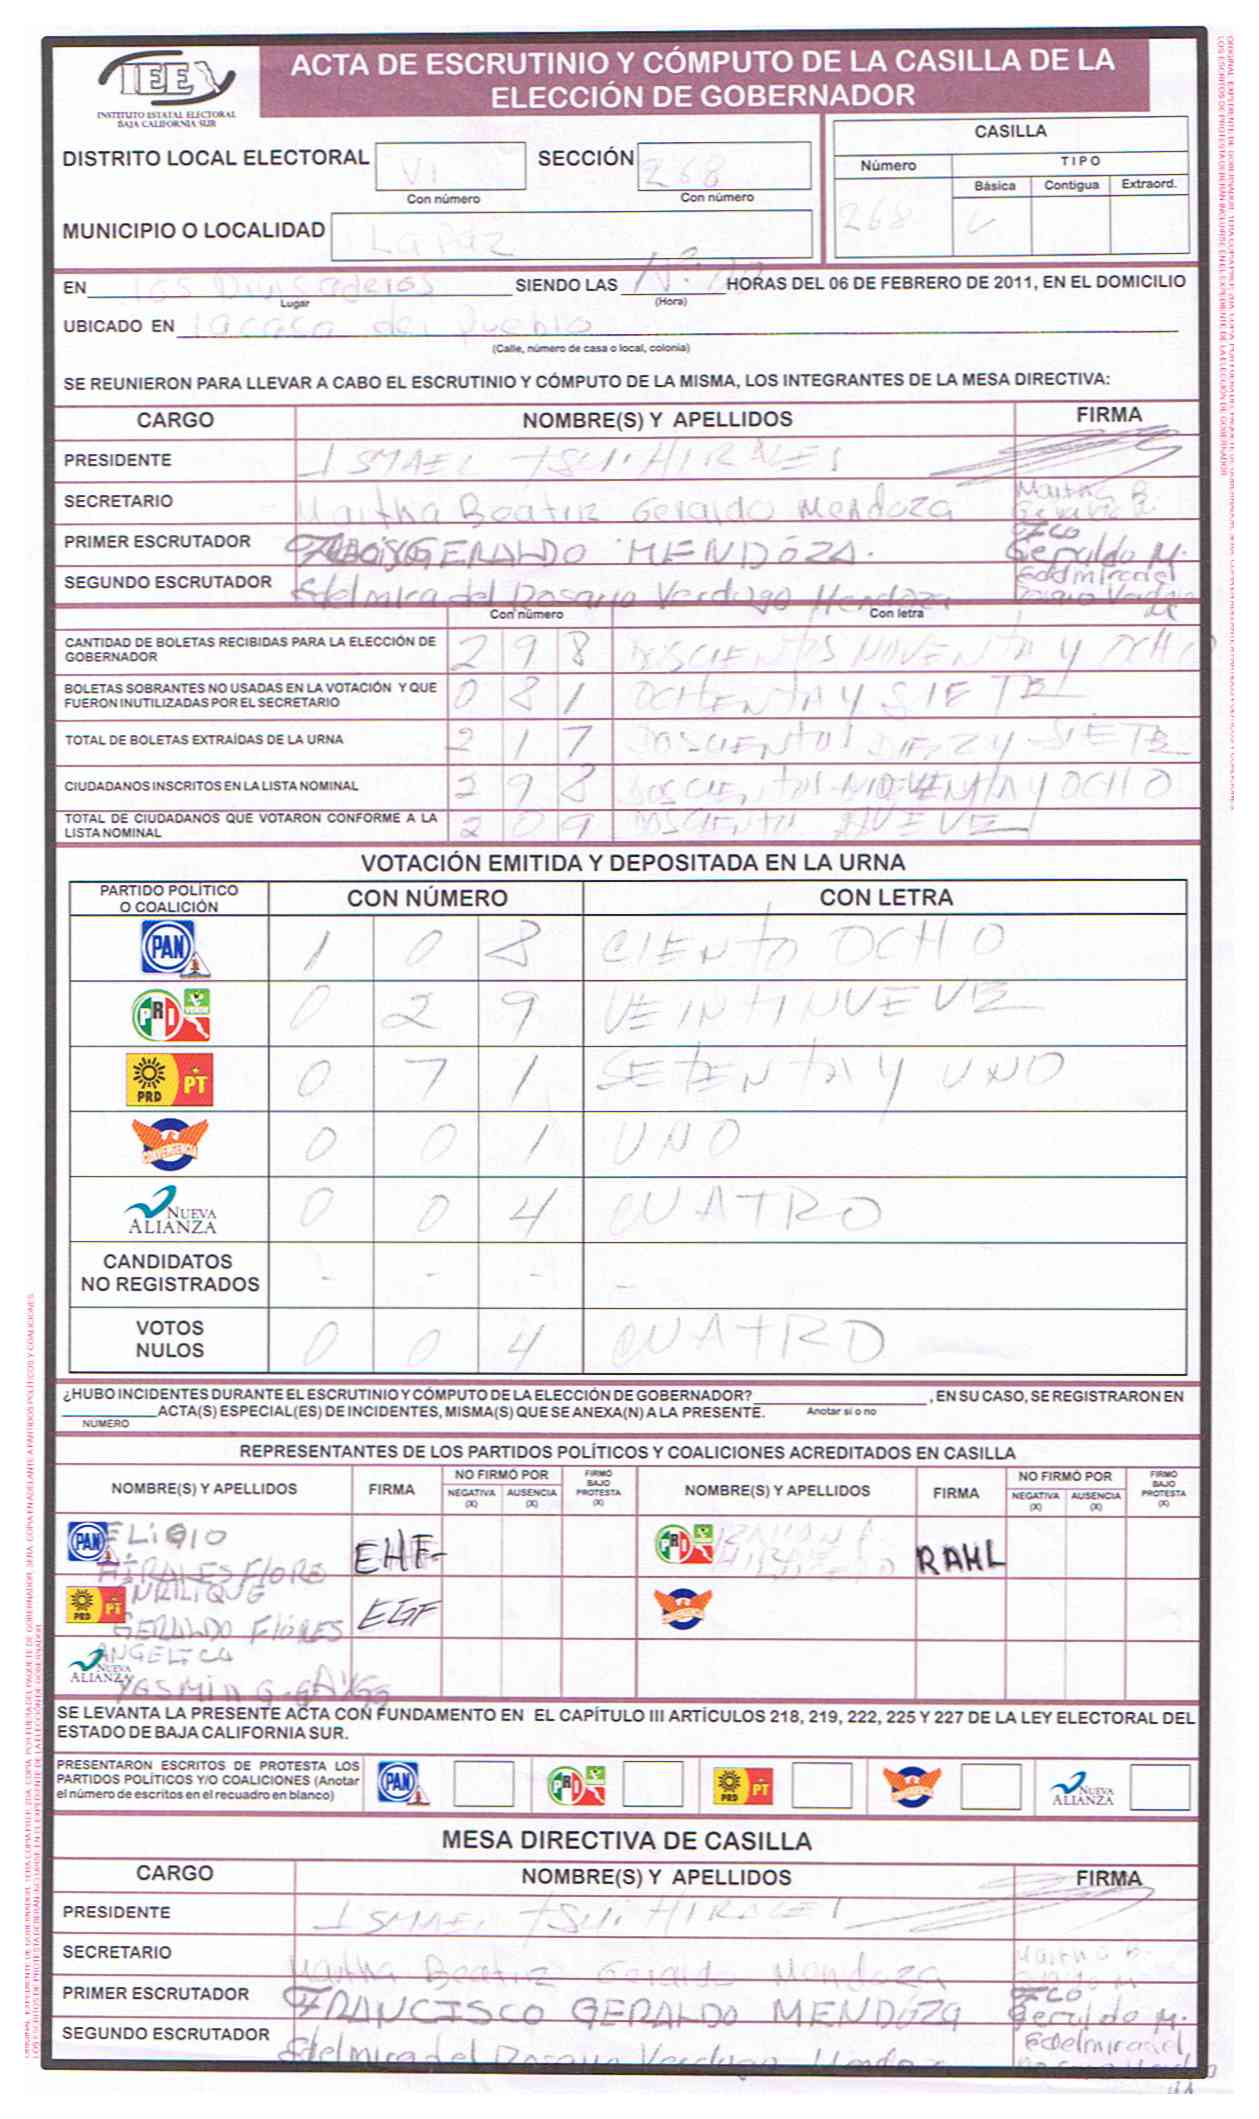 IEE
INSTITUTO ESTATAL ELECTORAL
BAJA CALIFORNIA SUR
ACTA DE ESCRUTINIO Y CÓMPUTO DE LA CASILLA DE LA
ELECCIÓN DE GOBERNADOR
DISTRITO LOCAL ELECTORAL VI SECCIÓN 268
Con número Con número
CASILLA
Número TIPO
Básica Contigua Extraord.
268
MUNICIPIO O LOCALIDAD La Paz
EN Los Divisaderos SIENDO LAS HORAS DEL 06 DE FEBRERO DE 2011, EN EL DOMICILIO
Lugar (Hora)
UBICADO EN la casa del Pueblo
(Calle, número de casa o local, colonia)
SE REUNIERON PARA LLEVAR A CABO EL ESCRUTINIO Y CÓMPUTO DE LA MISMA, LOS INTEGRANTES DE LA MESA DIRECTIVA:
CARGO NOMBRE(S) Y APELLIDOS FIRMA
PRESIDENTE ISMAEL HIRALES
SECRETARIO Martha Beatriz Geraldo Mendoza Martha B.
PRIMER ESCRUTADOR GERALDO MENDÓZA. FCO Geraldo M.
SEGUNDO ESCRUTADOR Edelmira del Rosario Verdugo Mendoza
Con número Con letra
CANTIDAD DE BOLETAS RECIBIDAS PARA LA ELECCIÓN DE
GOBERNADOR 298 DOSCIENTOS NOVENTA Y OCHO
BOLETAS SOBRANTES NO USADAS EN LA VOTACIÓN Y QUE
FUERON INUTILIZADAS POR EL SECRETARIO 081 OCHENTA Y SIETE
TOTAL DE BOLETAS EXTRAÍDAS DE LA URNA 217 DOSCIENTOS DIEZ Y SIETE
CIUDADANOS INSCRITOS EN LA LISTA NOMINAL 298 DOSCIENTOS NOVENTA Y OCHO
TOTAL DE CIUDADANOS QUE VOTARON CONFORME A LA
LISTA NOMINAL 209 DOSCIENTO NUEVE
VOTACIÓN EMITIDA Y DEPOSITADA EN LA URNA
PARTIDO POLÍTICO
O COALICIÓN CON NÚMERO CON LETRA
PAN 1 0 8 CIENTO OCHO
PRI VERDE 0 2 9 VEINTINUEVE
PRD PT 0 7 1 SETENTA Y UNO
CONVERGENCIA 0 0 1 UNO
NUEVA ALIANZA 0 0 4 CUATRO
CANDIDATOS
NO REGISTRADOS - - - -
VOTOS
NULOS 0 0 4 CUATRO
¿HUBO INCIDENTES DURANTE EL ESCRUTINIO Y CÓMPUTO DE LA ELECCIÓN DE GOBERNADOR? , EN SU CASO, SE REGISTRARON EN
ACTA(S) ESPECIAL(ES) DE INCIDENTES, MISMA(S) QUE SE ANEXA(N) A LA PRESENTE. Anotar sí o no
NUMERO
REPRESENTANTES DE LOS PARTIDOS POLÍTICOS Y COALICIONES ACREDITADOS EN CASILLA
NOMBRE(S) Y APELLIDOS FIRMA NO FIRMÓ POR NEGATIVA (X) AUSENCIA (X) FIRMÓ BAJO PROTESTA (X) NOMBRE(S) Y APELLIDOS FIRMA NO FIRMÓ POR NEGATIVA (X) AUSENCIA (X) FIRMÓ BAJO PROTESTA (X)
PAN ELIGIO
HIRALES FLORE EHF- PRI RAHL
PRD PT ENRIQUE
GERALDO FLORES EGF CONVERGENCIA
NUEVA ALIANZA ANGELICA
YASMIN G.
SE LEVANTA LA PRESENTE ACTA CON FUNDAMENTO EN EL CAPÍTULO III ARTÍCULOS 218, 219, 222, 225 Y 227 DE LA LEY ELECTORAL DEL
ESTADO DE BAJA CALIFORNIA SUR.
PRESENTARON ESCRITOS DE PROTESTA LOS
PARTIDOS POLÍTICOS Y/O COALICIONES (Anotar
el número de escritos en el recuadro en blanco)
PAN PRI PRD PT CONVERGENCIA NUEVA ALIANZA
MESA DIRECTIVA DE CASILLA
CARGO NOMBRE(S) Y APELLIDOS FIRMA
PRESIDENTE ISMAEL HIRALES
SECRETARIO Martha Beatriz Geraldo Mendoza Martha B.
PRIMER ESCRUTADOR FRANCISCO GERALDO MENDÓZA FCO Geraldo M.
SEGUNDO ESCRUTADOR Edelmira del Rosario Verdugo Edelmira del